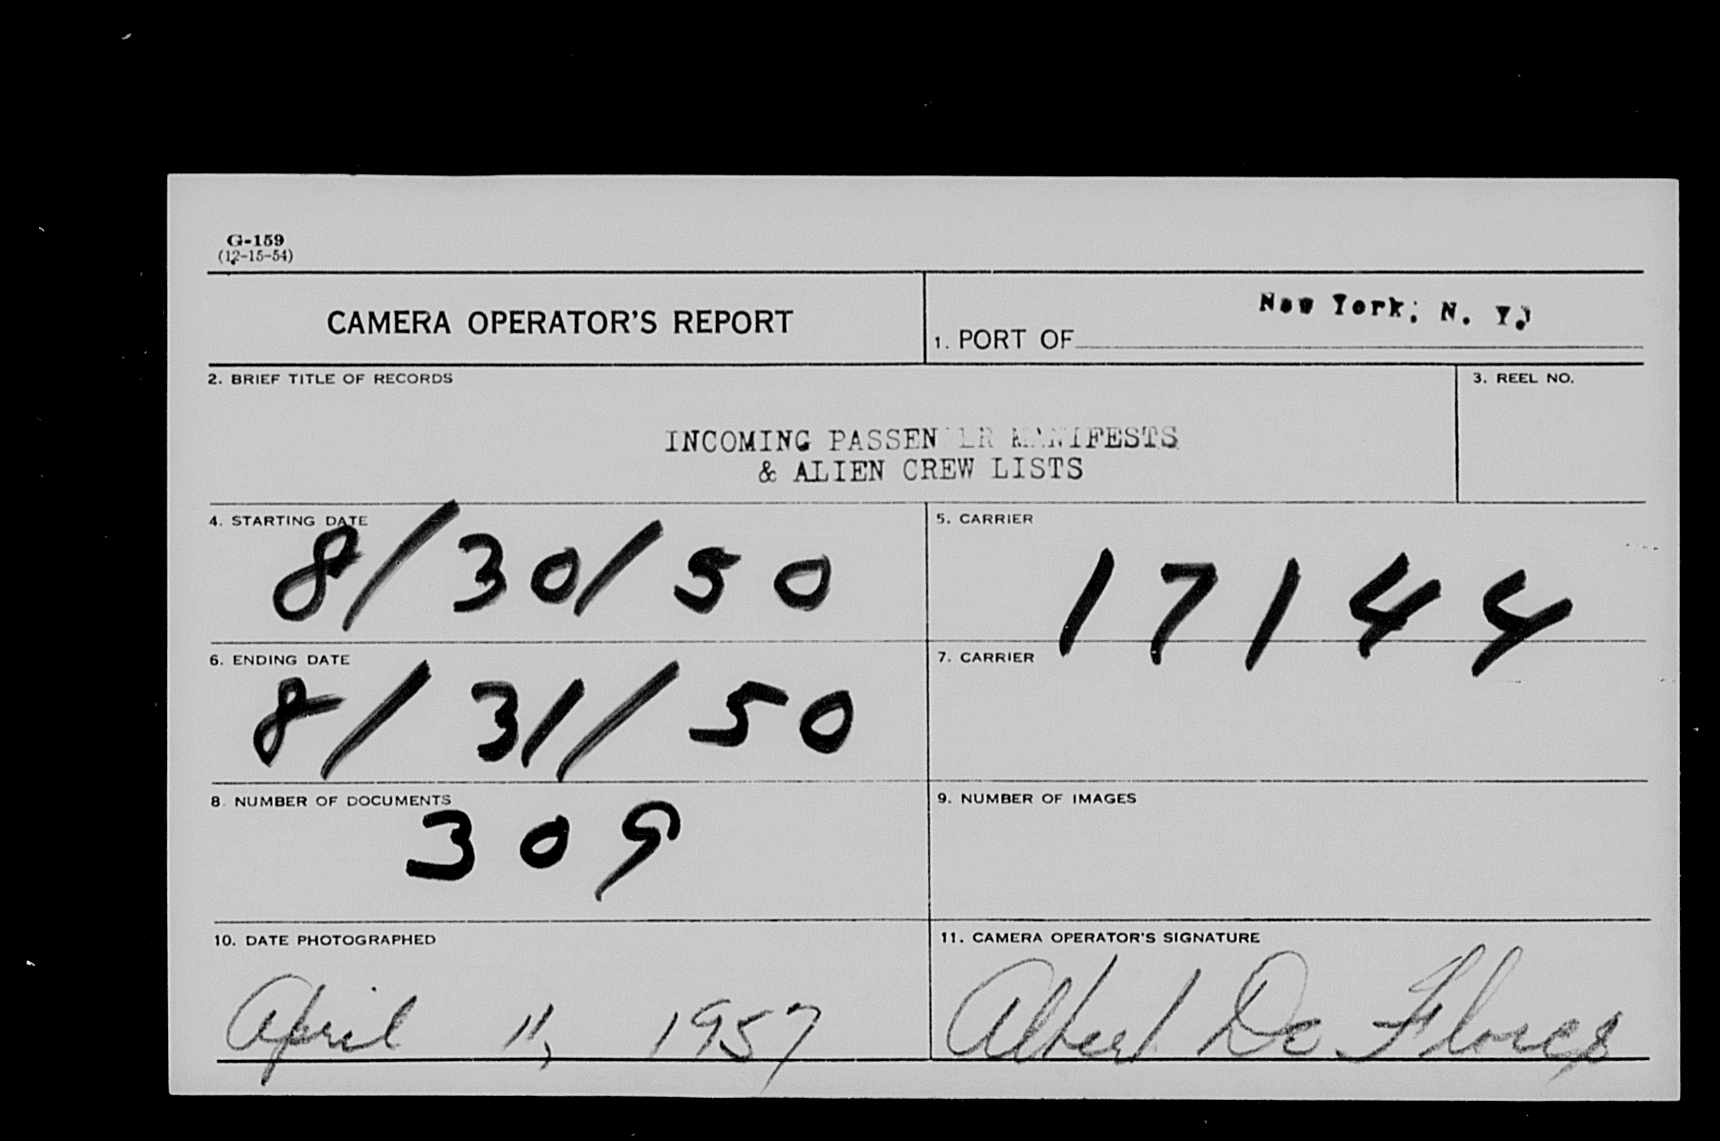 G-159
(12-15-54)
CAMERA OPERATOR'S REPORT
1. PORT OF New York, N. Y.
2. BRIEF TITLE OF RECORDS
3. REEL NO.
INCOMING PASSENGER MANIFESTS
& ALIEN CREW LISTS
4. STARTING DATE
8/30/50
5. CARRIER
17144
6. ENDING DATE
8/31/50
7. CARRIER
8. NUMBER OF DOCUMENTS
309
9. NUMBER OF IMAGES
10. DATE PHOTOGRAPHED
April 11, 1957
11. CAMERA OPERATOR'S SIGNATURE
Albert De Flores